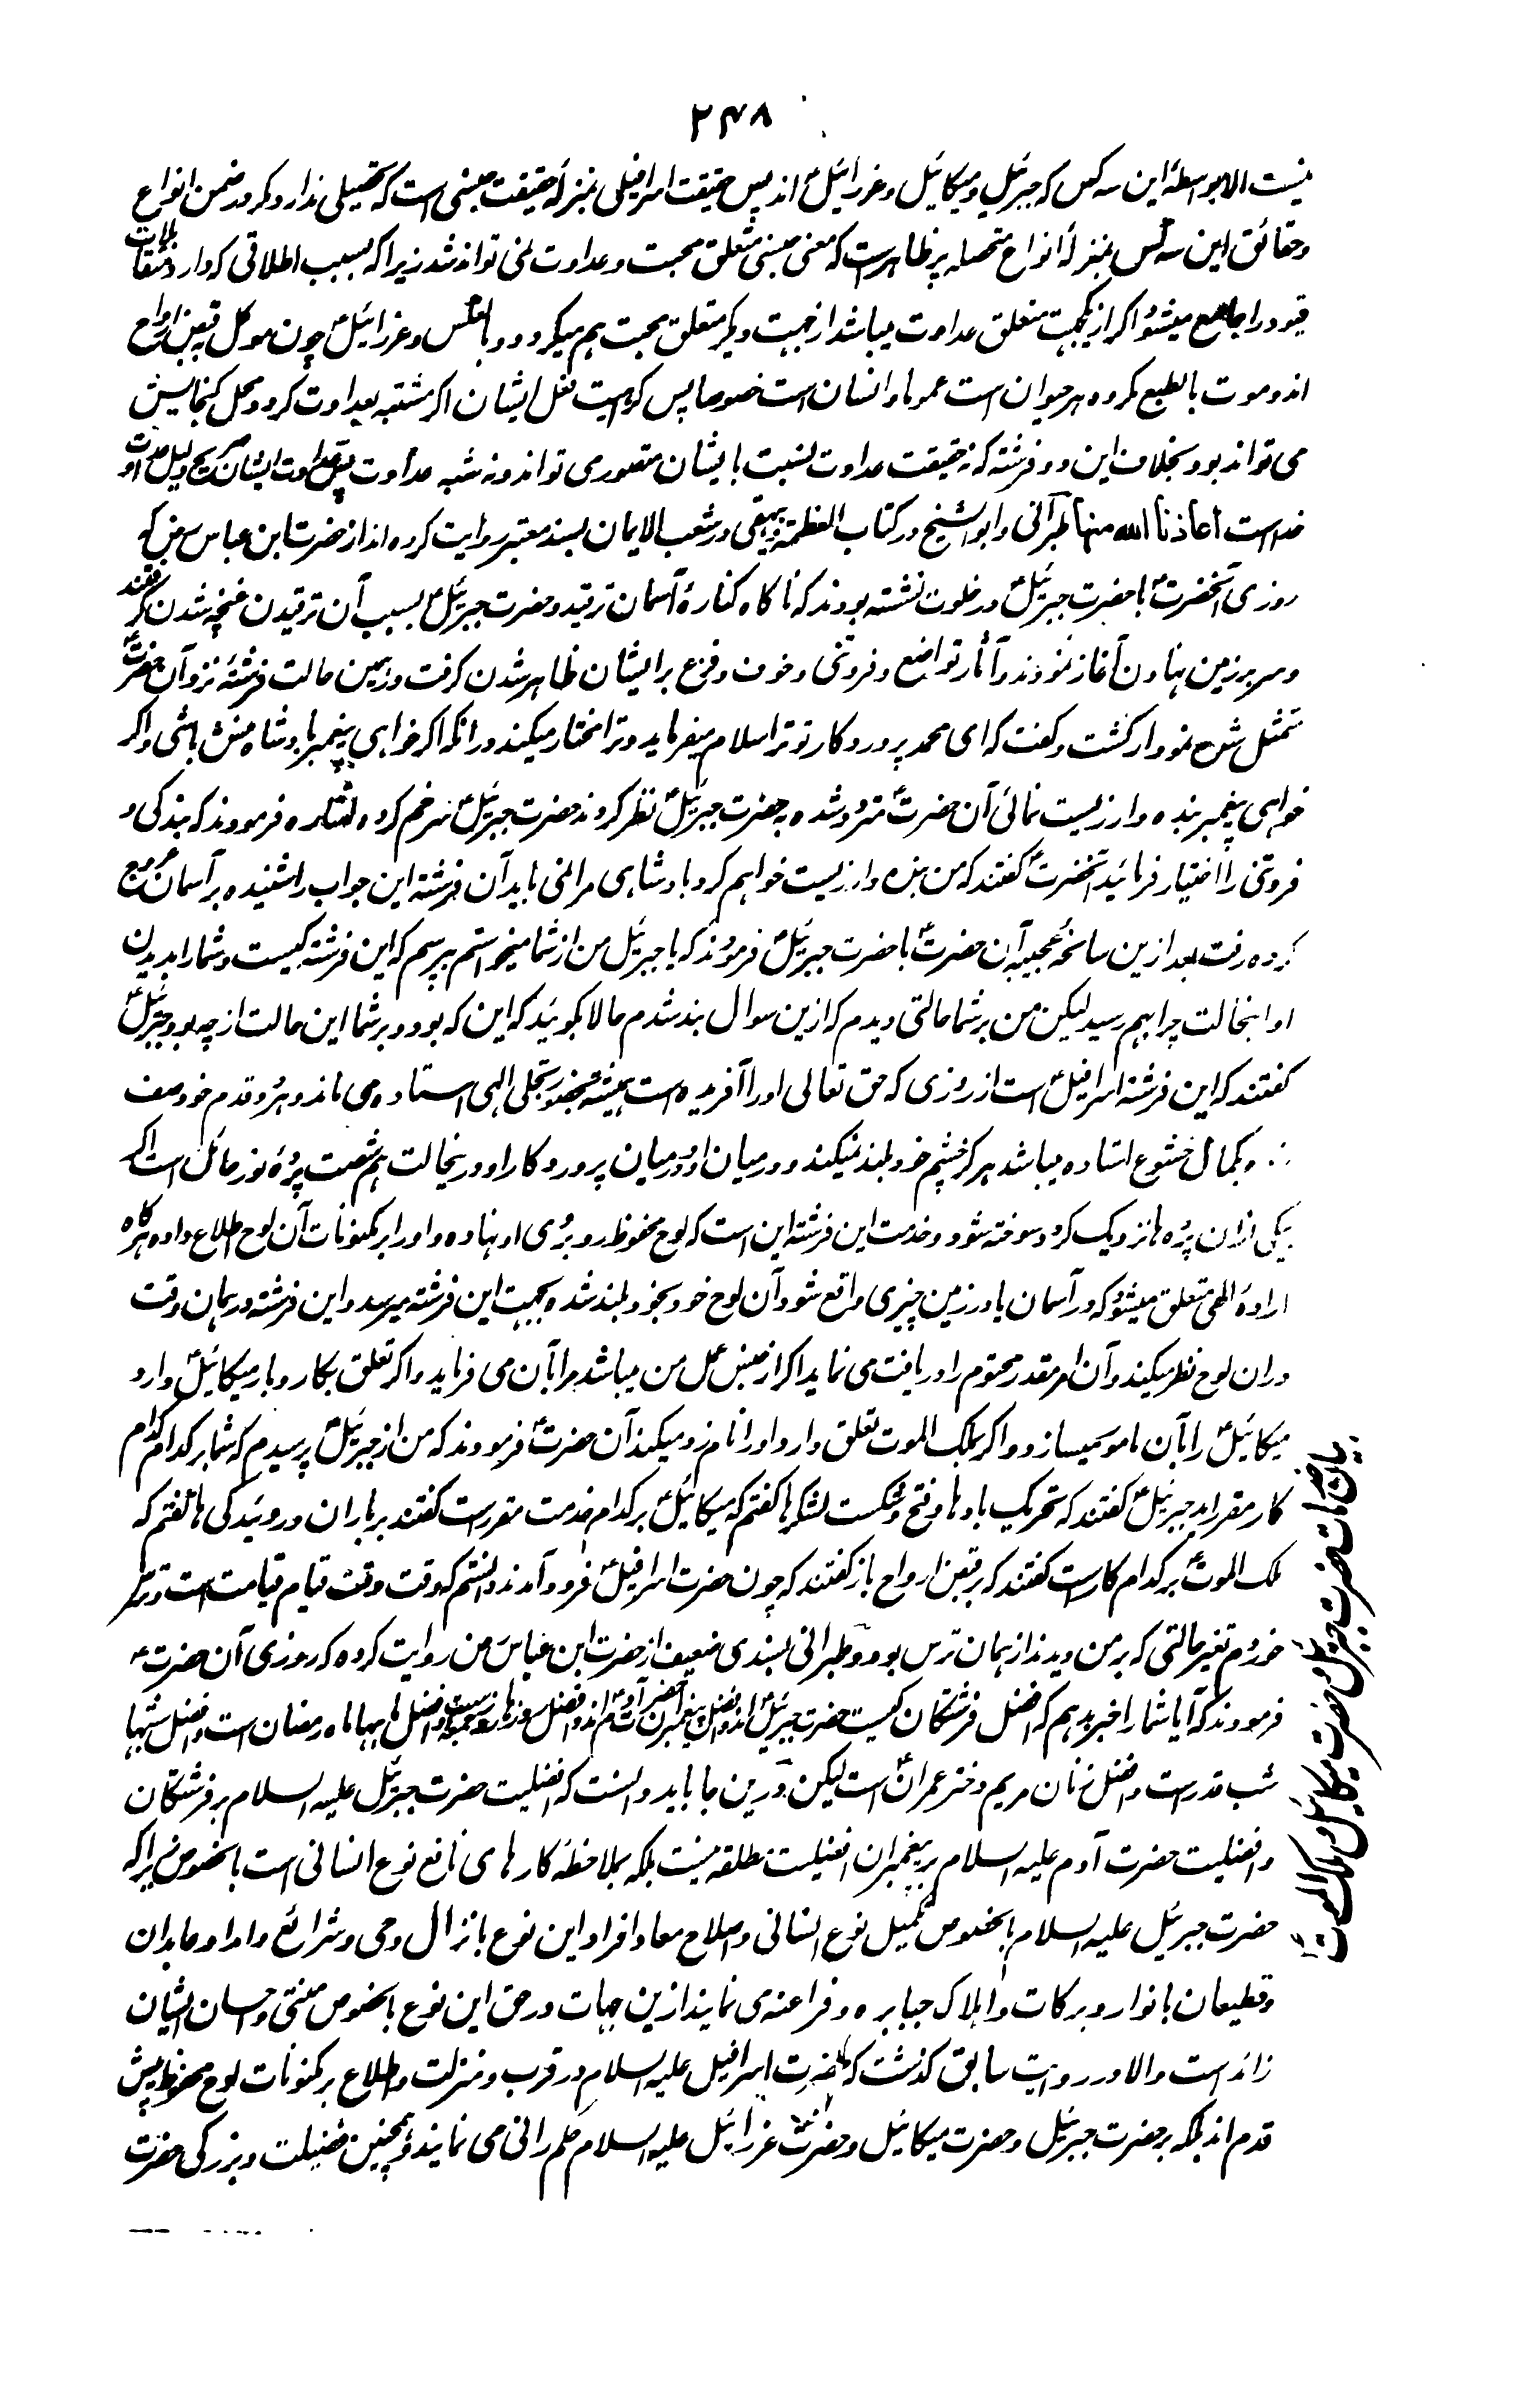 ۲۴۸
نیست الا بواسطۀ این سه کس که جبرئیل و میکائیل و عزرائیل اند پس حقیقت اسرافیلی بمنزلۀ حقیقت جنسی است که تحصیلی ندارد مگر در ضمن انواع
و حقائق این سه کس بمنزلۀ انواع متحصله پر ظاهر است که معنی جنسی متعلق محبت و عداوت نمی تواند شد زیرا که بسبب اطلاقی که دارد متقابلات
قیود را جامع میشود اگر از یکجهت متعلق عداوت میباشد از جهت دیگر متعلق محبت هم میگردد و بالعکس و عزرائیل چون موکل قبض ارواح
اند و موت بالطبع مکروه هر حیوان است عموما و انسان است خصوصا پس کراهیت فعل ایشان اگر مشتبه بعداوت گردد محل گنجایش
می تواند بود بخلاف این دو فرشته که نه حقیقت عداوت نسبت بایشان متصور می تواند و نه شبه عداوت پس عداوت ایشان صریح دلیل عداوت
خداست اعاذنا الله منها طبرانی و ابو الشیخ در کتاب العظمة و بیهقی در شعب الایمان بسند معتبر روایت کرده اند از حضرت ابن عباس رض که
روزی آنحضرت با حضرت جبرئیل در خلوت نشسته بودند که ناگاه کنارۀ آسمان ترقید و حضرت جبرئیل بسبب آن ترقیدن غنچه شدن گرفتند
و سر بر زمین نهادن آغاز نمودند و آثار تواضع و فروتنی و خوف و فزع بر ایشان ظاهر شدن گرفت در همین حالت فرشتۀ نزد آن حضرت
متمثل شده نمودار گشت و گفت که ای محمد پروردگار تو ترا سلام میفرماید و ترا مختار میکند در انکه اگر خواهی پیغمبر بادشاه منش باشی و اگر
خواهی پیغمبر بنده وار زیست نمائی آن حضرت متردد شده به حضرت جبرئیل نظر کردند حضرت جبرئیل سر خم کرده اشاره فرمودند که بندگی و
فروتنی را اختیار فرمائید آنحضرت گفتند که من بنده وار زیست خواهم کرد بادشاهی مرا نمی باید آن فرشته این جواب را شنیده بر آسمان عروج
کرده رفت بعد ازین سانحۀ عجیبه آن حضرت با حضرت جبرئیل فرمودند که یا جبرئیل من از شما میخواستم بپرسم که این فرشته کیست و شما را بدیدن
او اینحالت چرا بهم رسید لیکن من بر شما حالتی دیدم که ازین سوال بند شدم حالا بگوئید که این که بود و بر شما این حالت از چه بود جبرئیل
گفتند که این فرشته اسرافیل است از روزی که حق تعالی او را آفریده است همیشه بحضور تجلی الهی استاده می ماند و هر دو قدم خود صف
بکمال خشوع استاده میباشد هرگز چشم خود بلند نمیکند و درمیان او و درمیان پروردگار او درینحالت هم شصت پردۀ نور حائل است اگر
بیکی ازان پرده ها نزدیک گردد سوخته شود و خدمت این فرشته این است که لوح محفوظ رو بروی او نهاده و او را بر مکنونات آن لوح اطلاع داده هرگاه
ارادۀ الهی متعلق میشود که در آسمان یا در زمین چیزی واقع شود آن لوح خود بخود بلند شده بجبهت این فرشته میرسد و این فرشته در همان وقت
دران لوح نظر میکند و آن امر مقدر محتوم را دریافت می نماید اگر از جنس عمل من میباشد مرا بآن می فرماید و اگر تعلق بکار و بار میکائیل دارد
میکائیل را بآن مامور میسازد و اگر بملک الموت تعلق دارد او را نام زد میکند آن حضرت فرمودند که من از جبرئیل پرسیدم که شما بر کدام کدام
کار مقرر اید جبرئیل گفتند که تحریک بادها و فتح و شکست لشکرها گفتم که میکائیل بر کدام خدمت مقرر است گفتند بر باران و روئیدگی ها گفتم که
ملک الموت بر کدام کار است گفتند که بر قبض ارواح باز گفتند که چون حضرت اسرافیل فرود آمدند دانستم که وقت وقت قیام قیامت است و ترس
خوردم تغیر حالتی که بر من دیدند از همان ترس بود و طبرانی بسندی ضعیف از حضرت ابن عباس رض روایت کرده که روزی آن حضرت
فرمودند که آیا شما را خبر بدهم که افضل فرشتگان کیست حضرت جبرئیل اند و افضل پیغمبران حضرت آدم اند و افضل روزها روز جمعه و افضل ماهها ماه رمضان است و افضل شبها
شب قدر است و افضل زنان مریم دختر عمران است لیکن درین جا باید دانست که افضلیت حضرت جبرئیل علیه السلام بر فرشتگان
و افضلیت حضرت آدم علیه السلام بر پیغمبران افضلیت مطلقه نیست بلکه بملاحظۀ کارهای نافع نوع انسانی است بالخصوص زیرا که
حضرت جبرئیل علیه السلام بالخصوص تکمیل نوع انسانی و اصلاح معاد افراد این نوع بانزال وحی و شرائع و امداد عابدان
و مطیعان بانوار و برکات و اهلاک جبابره و فراعنه می نمایند ازین جهات در حق این نوع بالخصوص منتی و احسان ایشان
زائد است و الا در روایت سابق گذشت که حضرت اسرافیل علیه السلام در قرب و منزلت و اطلاع بر مکنونات لوح محفوظ پیش
قدم اند بلکه بر حضرت جبرئیل و حضرت میکائیل و حضرت عزرائیل علیه السلام حکم رانی می نمایند و همچنین فضیلت و بزرگی حضرت
بیان خدمات حضرت جبرئیل و حضرت میکائیل و ملک الموت